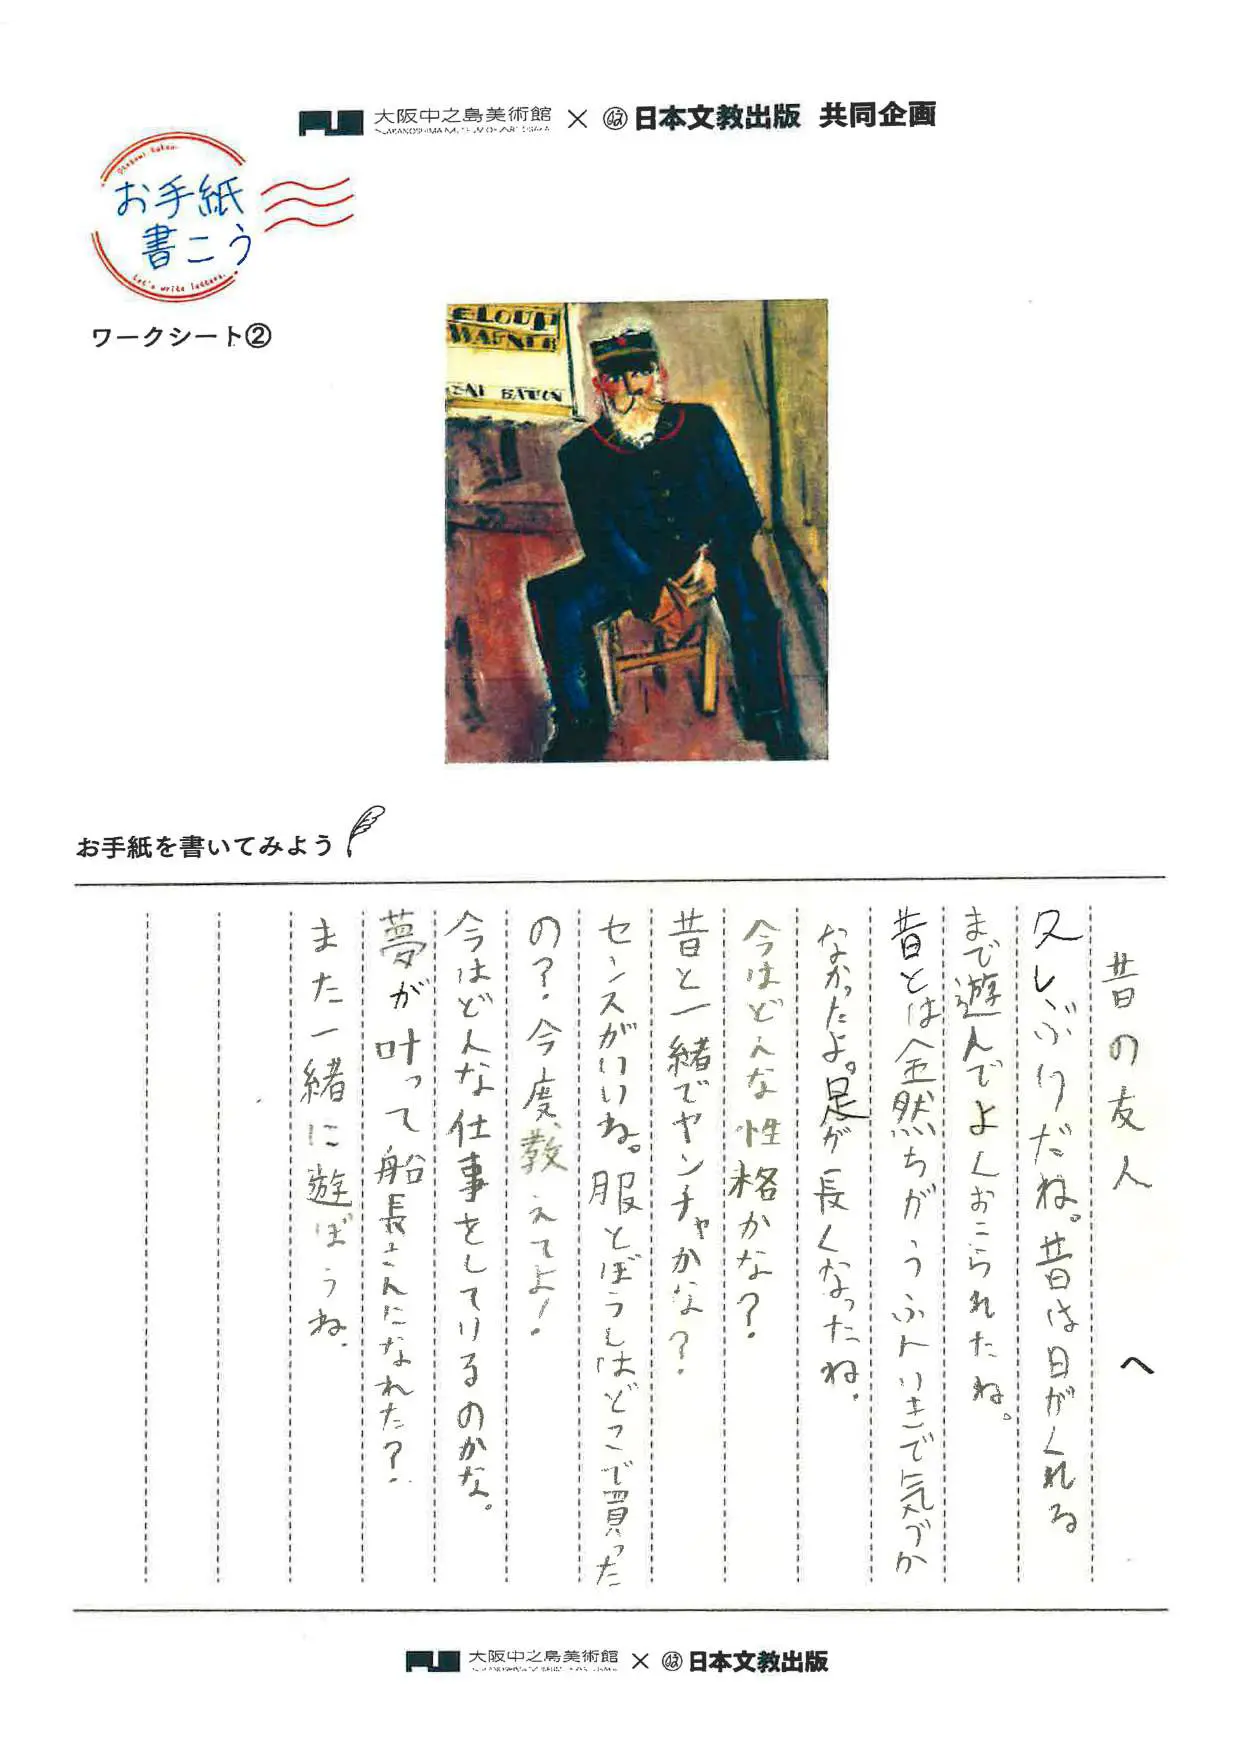 大阪中之島美術館 × 日本文教出版 共同企画
お手紙
書こう
Let's write letters.
ワークシート②
お手紙を書いてみよう
昔の友人へ
久しぶりだね。昔は日がくれる
まで遊んでよくおこられたね。
昔とは全然ちがうふんいきで気づか
なかったよ。足が長くなったね。
今はどんな性格かな?
昔と一緒でヤンチャかな?
センスがいいね。服とぼうしはどこで買った
の?今度教えてよ!
今はどんな仕事をしているのかな。
夢が叶って船長さんになれた?
また一緒に遊ぼうね.
大阪中之島美術館 × 日本文教出版